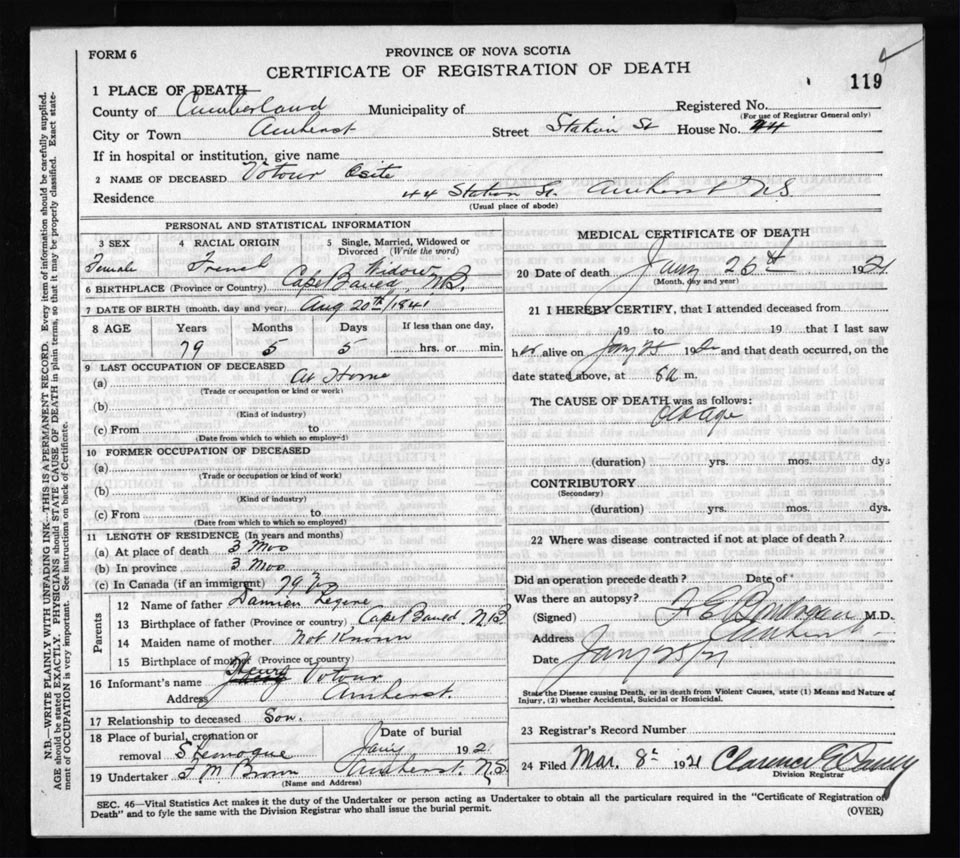 FORM 6
PROVINCE OF NOVA SCOTIA
CERTIFICATE OF REGISTRATION OF DEATH
119
1 PLACE OF DEATH
County of Cumberland Municipality of Registered No.
(For use of Registrar General only)
City or Town Amherst Street Station St House No. 44
If in hospital or institution, give name
2 NAME OF DECEASED Votour Osite
Residence 44 Station St. Amherst N.S.
(Usual place of abode)
PERSONAL AND STATISTICAL INFORMATION
3 SEX 4 RACIAL ORIGIN 5 Single, Married, Widowed or Divorced (Write the word)
Female French Widow
6 BIRTHPLACE (Province or Country) Cape Bauld, N.B.
7 DATE OF BIRTH (month, day and year) Aug 20th/1841
8 AGE Years Months Days If less than one day,
79 5 5 hrs. or min.
9 LAST OCCUPATION OF DECEASED
(a) At Home
(Trade or occupation or kind of work)
(b)
(Kind of industry)
(c) From to
(Date from which to which so employed)
10 FORMER OCCUPATION OF DECEASED
(a)
(Trade or occupation or kind of work)
(b)
(Kind of industry)
(c) From to
(Date from which to which so employed)
11 LENGTH OF RESIDENCE (In years and months)
(a) At place of death 3 Mos
(b) In province 3 Mos
(c) In Canada (if an immigrant) 79 Yrs
Parents
12 Name of father Damien Legere
13 Birthplace of father (Province or country) Cape Bauld N.B.
14 Maiden name of mother Not Known
15 Birthplace of mother (Province or country)
16 Informant's name Henry Votour
Address Amherst.
17 Relationship to deceased Son.
18 Place of burial, cremation or removal Date of burial
Shemogue Jany 1921
19 Undertaker F M Brown Amherst. N.S.
(Name and Address)
MEDICAL CERTIFICATE OF DEATH
20 Date of death Jany 25th 1921
(Month, day and year)
21 I HEREBY CERTIFY, that I attended deceased from
19 to 19 that I last saw
her alive on Jany 25 192 and that death occurred, on the
date stated above, at 8a m.
The CAUSE OF DEATH was as follows:
Old age
(duration) yrs. mos. dys
CONTRIBUTORY
(Secondary)
(duration) yrs. mos. dys.
22 Where was disease contracted if not at place of death?
Did an operation precede death? Date of
Was there an autopsy?
(Signed) F. E. M.D.
Address Amherst
Date Jany 25/21
State the Disease causing Death, or in death from Violent Causes, state (1) Means and Nature of
Injury, (2) whether Accidental, Suicidal or Homicidal.
23 Registrar's Record Number
24 Filed Mar. 8th 1921 Clarence E
Division Registrar
SEC. 46—Vital Statistics Act makes it the duty of the Undertaker or person acting as Undertaker to obtain all the particulars required in the "Certificate of Registration of
Death" and to fyle the same with the Division Registrar who shall issue the burial permit.
(OVER)
N.B.—WRITE PLAINLY WITH UNFADING INK—THIS IS A PERMANENT RECORD. Every item of information should be carefully supplied.
AGE should be stated EXACTLY. PHYSICIANS should STATE CAUSE OF DEATH in plain terms, so that it may be properly classified. Exact statement of OCCUPATION is very important. See instructions on back of Certificate.